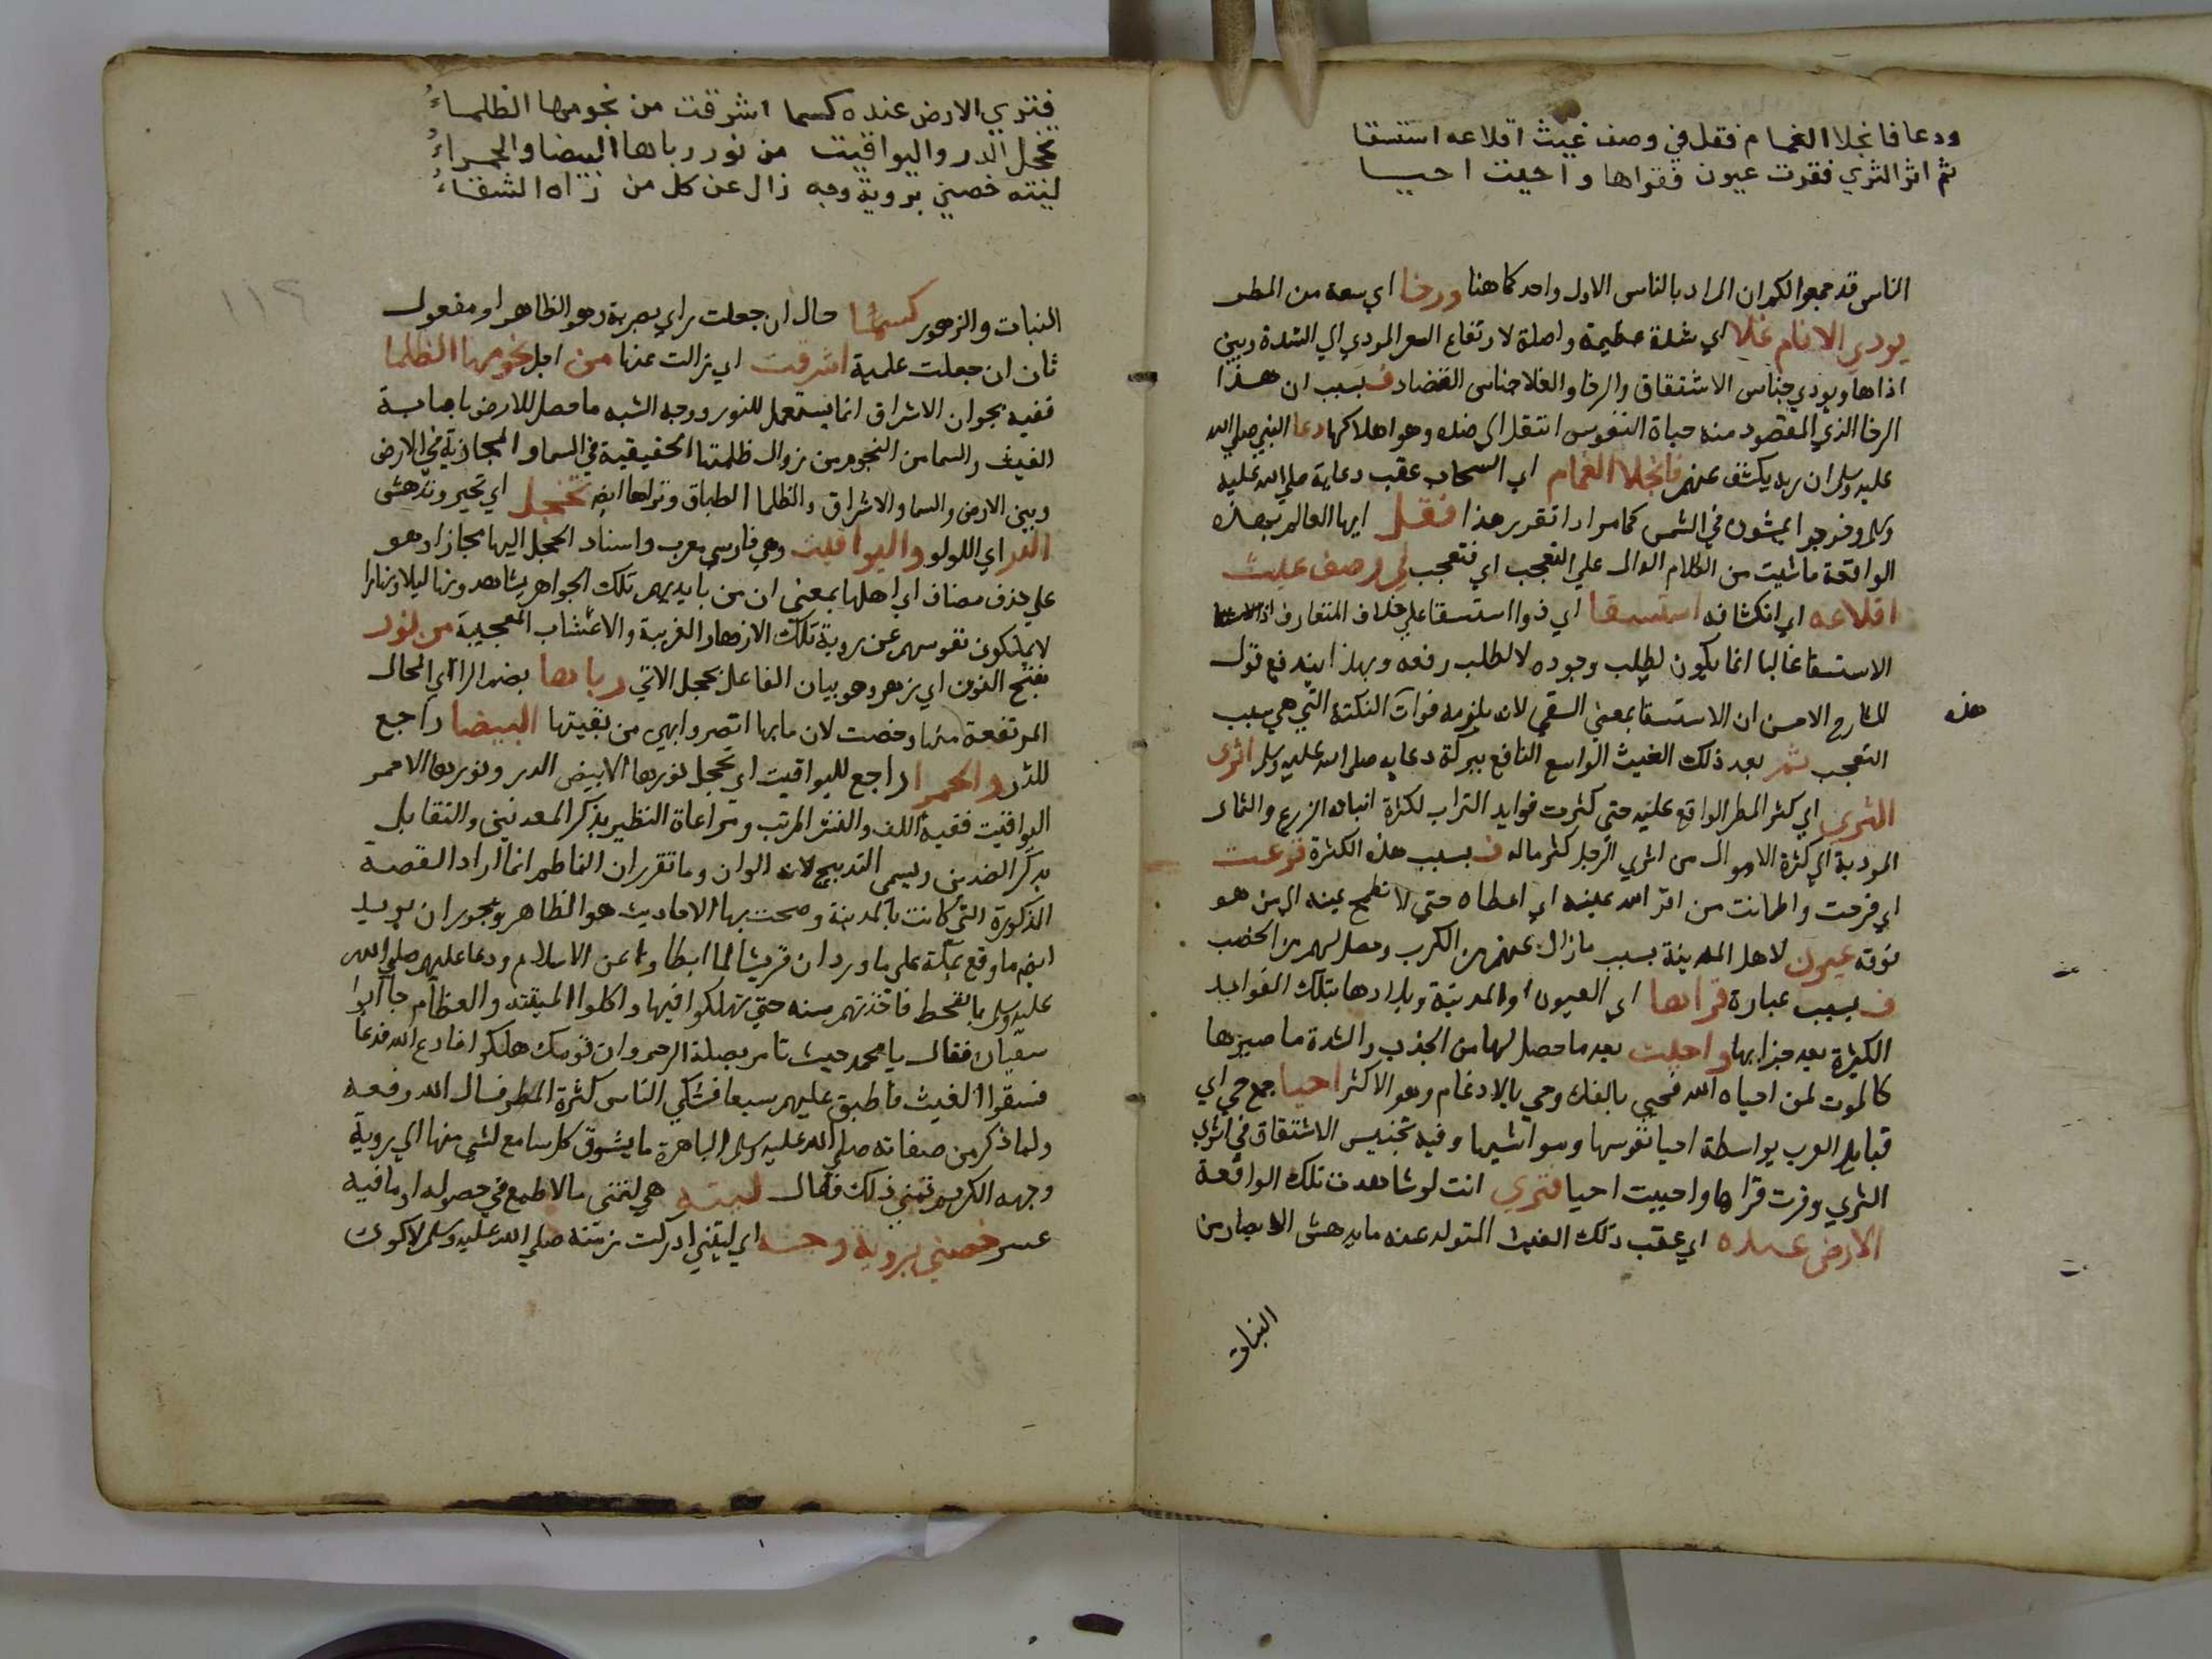 ودعا فانجلا الغمام فقل في وصف غيث اقلاعه استسقا
ثم اثر الثري فقرت عيون فقراها واحيت احيا
الناس قد جمعوا لكم ان المراد بالناس الاول واحد كما هنا ورخا اي سعة من المطر
يودي الانام غلا اي شدة عظيمة واصلة لارتفاع السعر المودي الي الشدة وبين
اذاها ويودي جناس الاشتقاق والرخا والغلا جناس التضاد ف بسبب ان هذا
الرخا الذي المقصود منه حياة النفوس انتقل الي ضده وهو اهلاكها دعا النبي صلي الله
عليه وسلم ان ربه يكشف عنهم فانجلا الغمام اي السحاب عقب دعايه صلي الله عليه
وسلم وخرجوا يمشون في الشمس كما مر اذا تقرر هذا فقل ايها العالم بهذه
الواقعة ما شيت من الكلام الدال علي التعجب اي فتعجب في وصف غيث
اقلاعه اي انكشافه استسقا اي ذوا استسقا علي خلاف المتعارف اذ
الاستسقا غالبا انما يكون لطلب وجوده لا لطلب رفعه وبهذا يندفع قول
الشارح الاحسن ان الاستسقا بمعني السقي لانه يلزمه فوات النكتة التي هي سبب
هذه
التعجب ثم بعد ذلك الغيث الواسع النافع ببركة دعايه صلي الله عليه وسلم اثري
الثري اي كثر المطر الواقع عليه حتي كثرت فوايد التراب لكثرة انباته الزرع والثمار
المودية الي كثرة الاموال من اثري الرجل كثر ماله ف بسبب هذه الكثرة قرعت
اي فرحت واطمانت من اقر الله عينه اي اعطاه حتي لا تطمح عينه الي من هو
فوقه عيون لاهل المدينة بسبب ما زال عنهم من الكرب وحصل لهم من الخصب
ف بسبب عبارة قراها اي العيون او المدينة وبلادها بتلك الفوايد
الكثيرة بعد خرابها واحيت بعد ما حصل لها من الجذب والشدة ما صيرها
كالموت لمن احياه الله فحيي بالفك وحي بالادغام وهو الاكثر احيا جمع حي اي
قبايل العرب بواسطة احيا نفوسها ومواشيها وفيه تجنيس الاشتقاق في اثري
الثري وقرت قراها واحييت احيا فتري انت لو شاهدت تلك الواقعة
الارض عنده اي عقب ذلك الغيث المتولد عنه ما يدهش الابصار من
النبات
فتري الارض عنده كسما اشرقت من نجومها الظلماءُ
تخجل الدر واليواقيت من نور رباها البيضا والحمراءُ
ليته خصني برويةٍ وجه زال عن كل من رآه الشقاءُ
١١٩
النبات والزهور كسما حال ان جعلت راي بصرية وهو الظاهر او مفعول
ثان ان جعلت علمية اشرقت اي زالت عنها من اجل نجومها الظلما
ففيه تجوز ان الاشراق انما يستعمل للنور ووجه الشبه ما حصل للارض باصابة
الغيث والسما من النجوم من زوال ظلمتها الحقيقية في السما والمجازية في الارض
وبين الارض والسما والاشراق والظلما الطباق وتراها ايض تخجل اي تحير وتدهش
الدر اي اللولو واليواقيت وهي فارسي معرب واسناد الخجل اليها مجاز او هو
علي حذف مضاف اي اهلها بمعني ان من بايديهم تلك الجواهر يشاهدونها ليلا ونهارا
لا يملكون نفوسهم عن روية تلك الازهار الغريبة والاعشاب العجيبة من نور
بفتح النون اي زهر وهو بيان الفاعل تخجل الاتي رباها بضم الرا اي المحال
المرتفعة منها وخصت لان ما بها انضر وابهي من بقيتها البيضا راجع
للدر والحمرا راجع لليواقيت اي تخجل نورها الابيض الدر ونورها الاحمر
اليواقيت ففيه اللف والنشر المرتب ومراعاة النظير بذكر المعدنين والتقابل
بذكر الضدين ويسمي التدبيج لانه الوان وما تقرر ان الناظم انما اراد القصة
المذكورة التي كانت بالمدينة وصحت بها الاحاديث هو الظاهر ويجوز ان يريد
ايضم ما وقع بمكة علي ما ورد ان قريشا لما ابطاوا عن الاسلام ودعا عليهم صلي الله
عليه وسلم بالقحط فاخذتهم سنه حتي تهلكوا فيها واكلوا الميته والعظام جا ابوا
سفيان فقال يا محمد جيت تامر بصلة الرحم وان قومك هلكوا فادع الله فدعا
فسقوا الغيث فاطبق عليهم سبعا فشكي الناس كثرة المطر فسال الله رفعه
ولما ذكر من صفاته صلي الله عليه وسلم الباهرة ما يشوق كل سامع لشي منها الي روية
وجهه الكريم تمني ذلك فقال ليته هي لتمني ما لا طمع في حصوله او ما فيه
عسر خصني بروية وجه اي ليتني ادركت زمنه صلي الله عليه وسلم لاكون